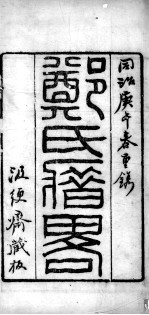 同治庚午春重鐫
鄭氏瘄畧
汲綆齋藏板